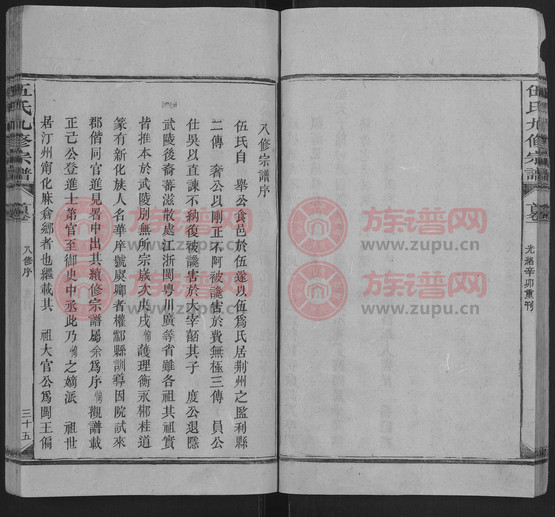 伍氏九修宗譜
光緒辛卯重刊
八修宗譜序
伍氏自 舉公食邑於伍遂以伍為氏居荆州之監利縣
二傳 奢公以剛正不阿被讒害於費無極三傳 員公
仕吳以直諫不納復被讒害於太宰嚭其子 虔公退隱
武陵後裔蕃滋散處江浙閩粵川廣等省雖各祖其祖實
皆推本於武陵別無所宗歲次庚戌 護理衡永郴桂道
篆有新化族人名華序號虞卿者權酃縣訓導因院試來
郡偕同官進見署中出其續修宗譜屬余為序 觀譜載
正己公登進士第官至御史中丞此乃 之嫡派 祖世
居汀州甯化麻倉鄉者也繼載其 祖大官公為閩王偏
伍氏九修宗譜
八修序
三十五
族谱网
www.zupu.cn
族谱网
www.zupu.cn
族谱网
www.zupu.cn
族谱网
www.zupu.cn